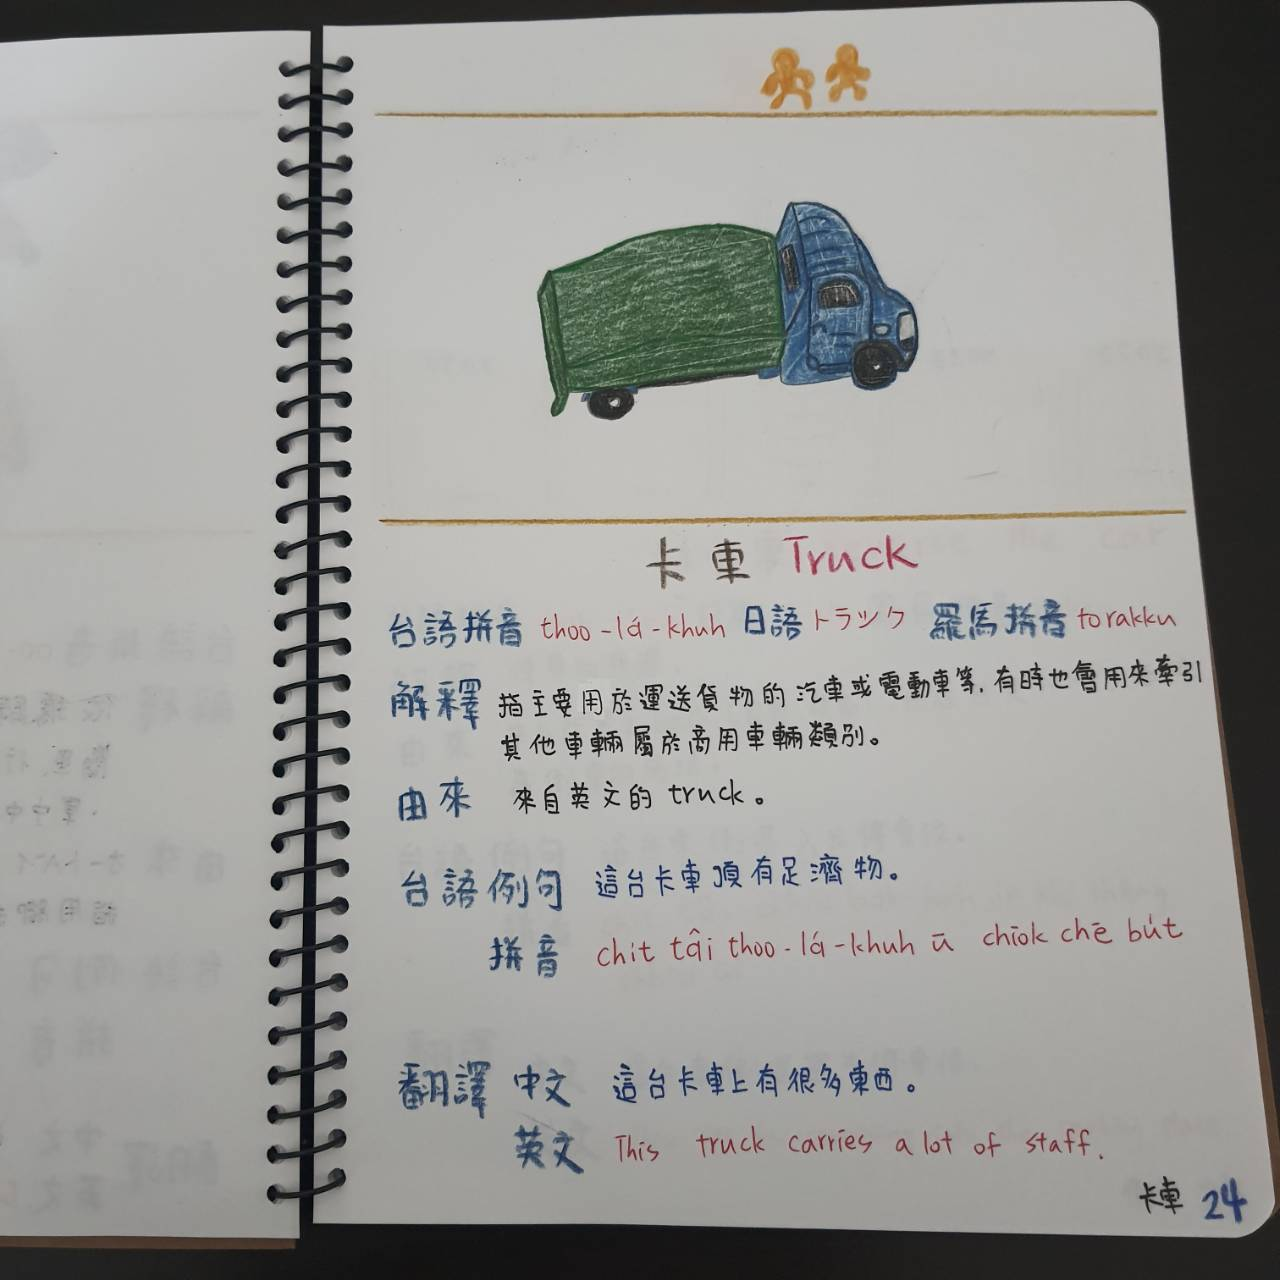 卡車 Truck
台語拼音 thoo-lá-khuh 日語 トラック 羅馬拼音 torakku
解釋 指主要用於運送貨物的汽車或電動車等,有時也會用來牽引
其他車輛屬於商用車輛類別。
由來 來自英文的 truck。
台語例句 這台卡車頂有足濟物。
拼音 chit tâi thoo-lá-khuh ū chiok chē bút
翻譯 中文 這台卡車上有很多東西。
英文 This truck carries a lot of staff.
卡車 24